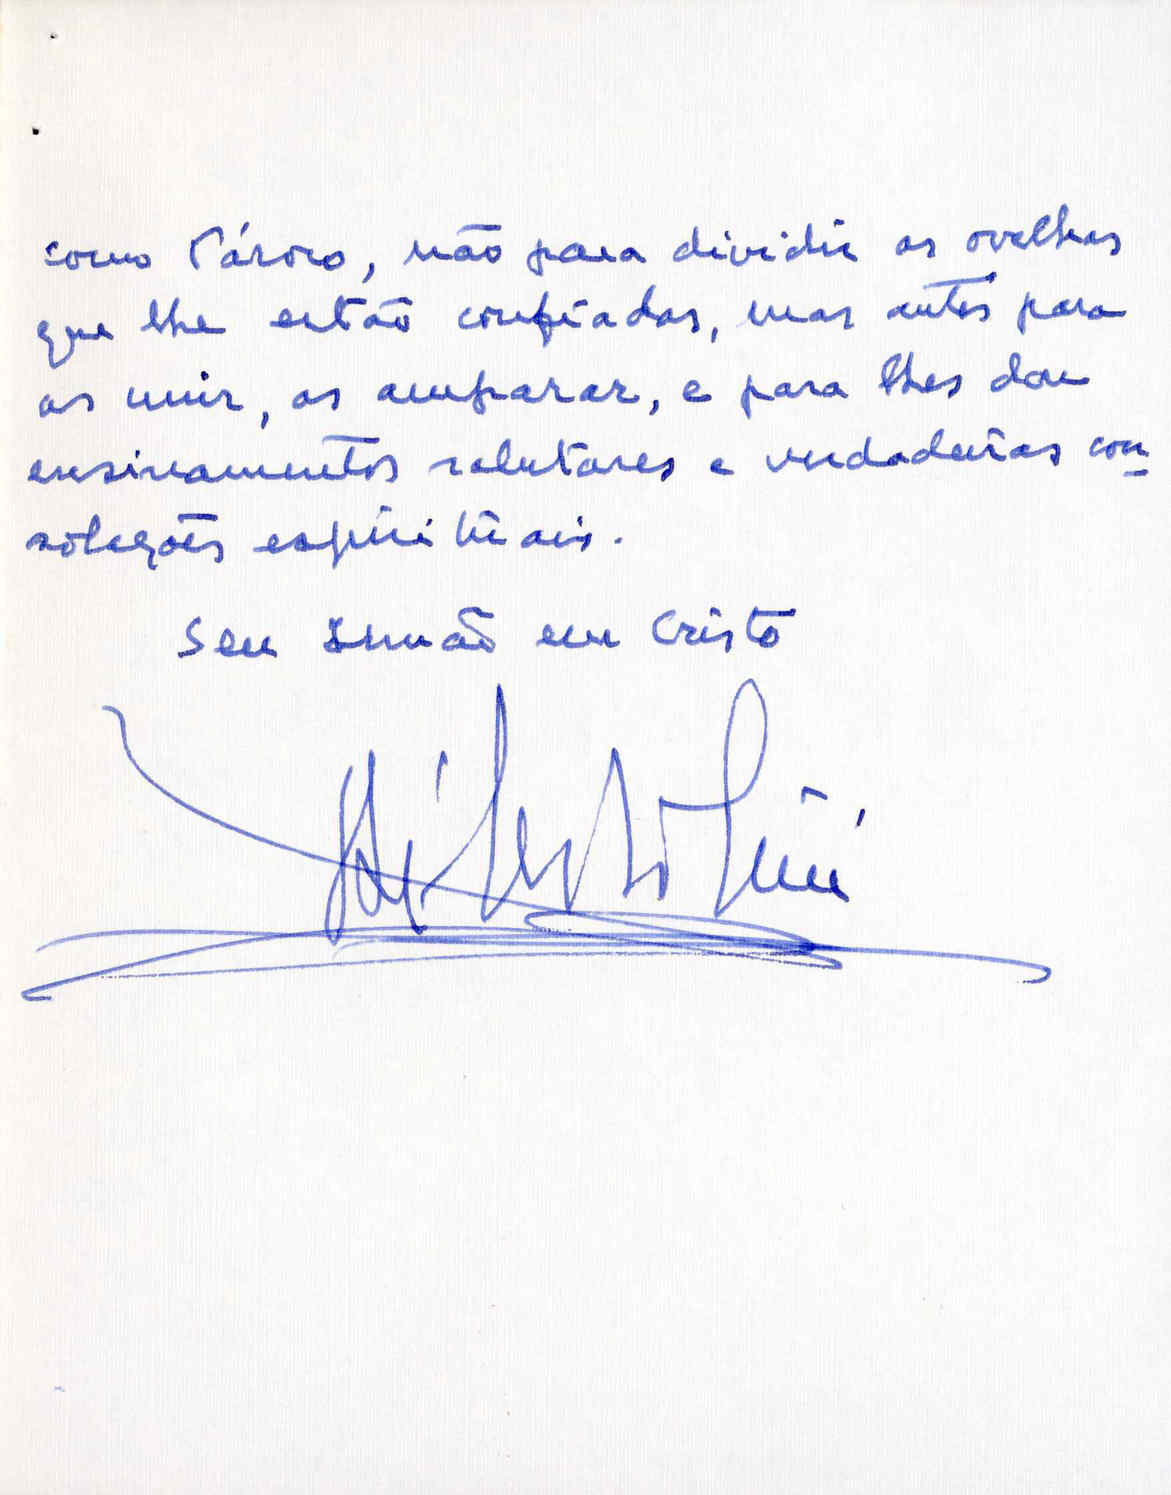 como Pároco, não para dividir as ovelhas
que lhe estão confiadas, mas antes para
as unir, as amparar, e para lhes dar
ensinamentos salutares e verdadeiras con-
solações espirituais.
Seu Irmão em Cristo